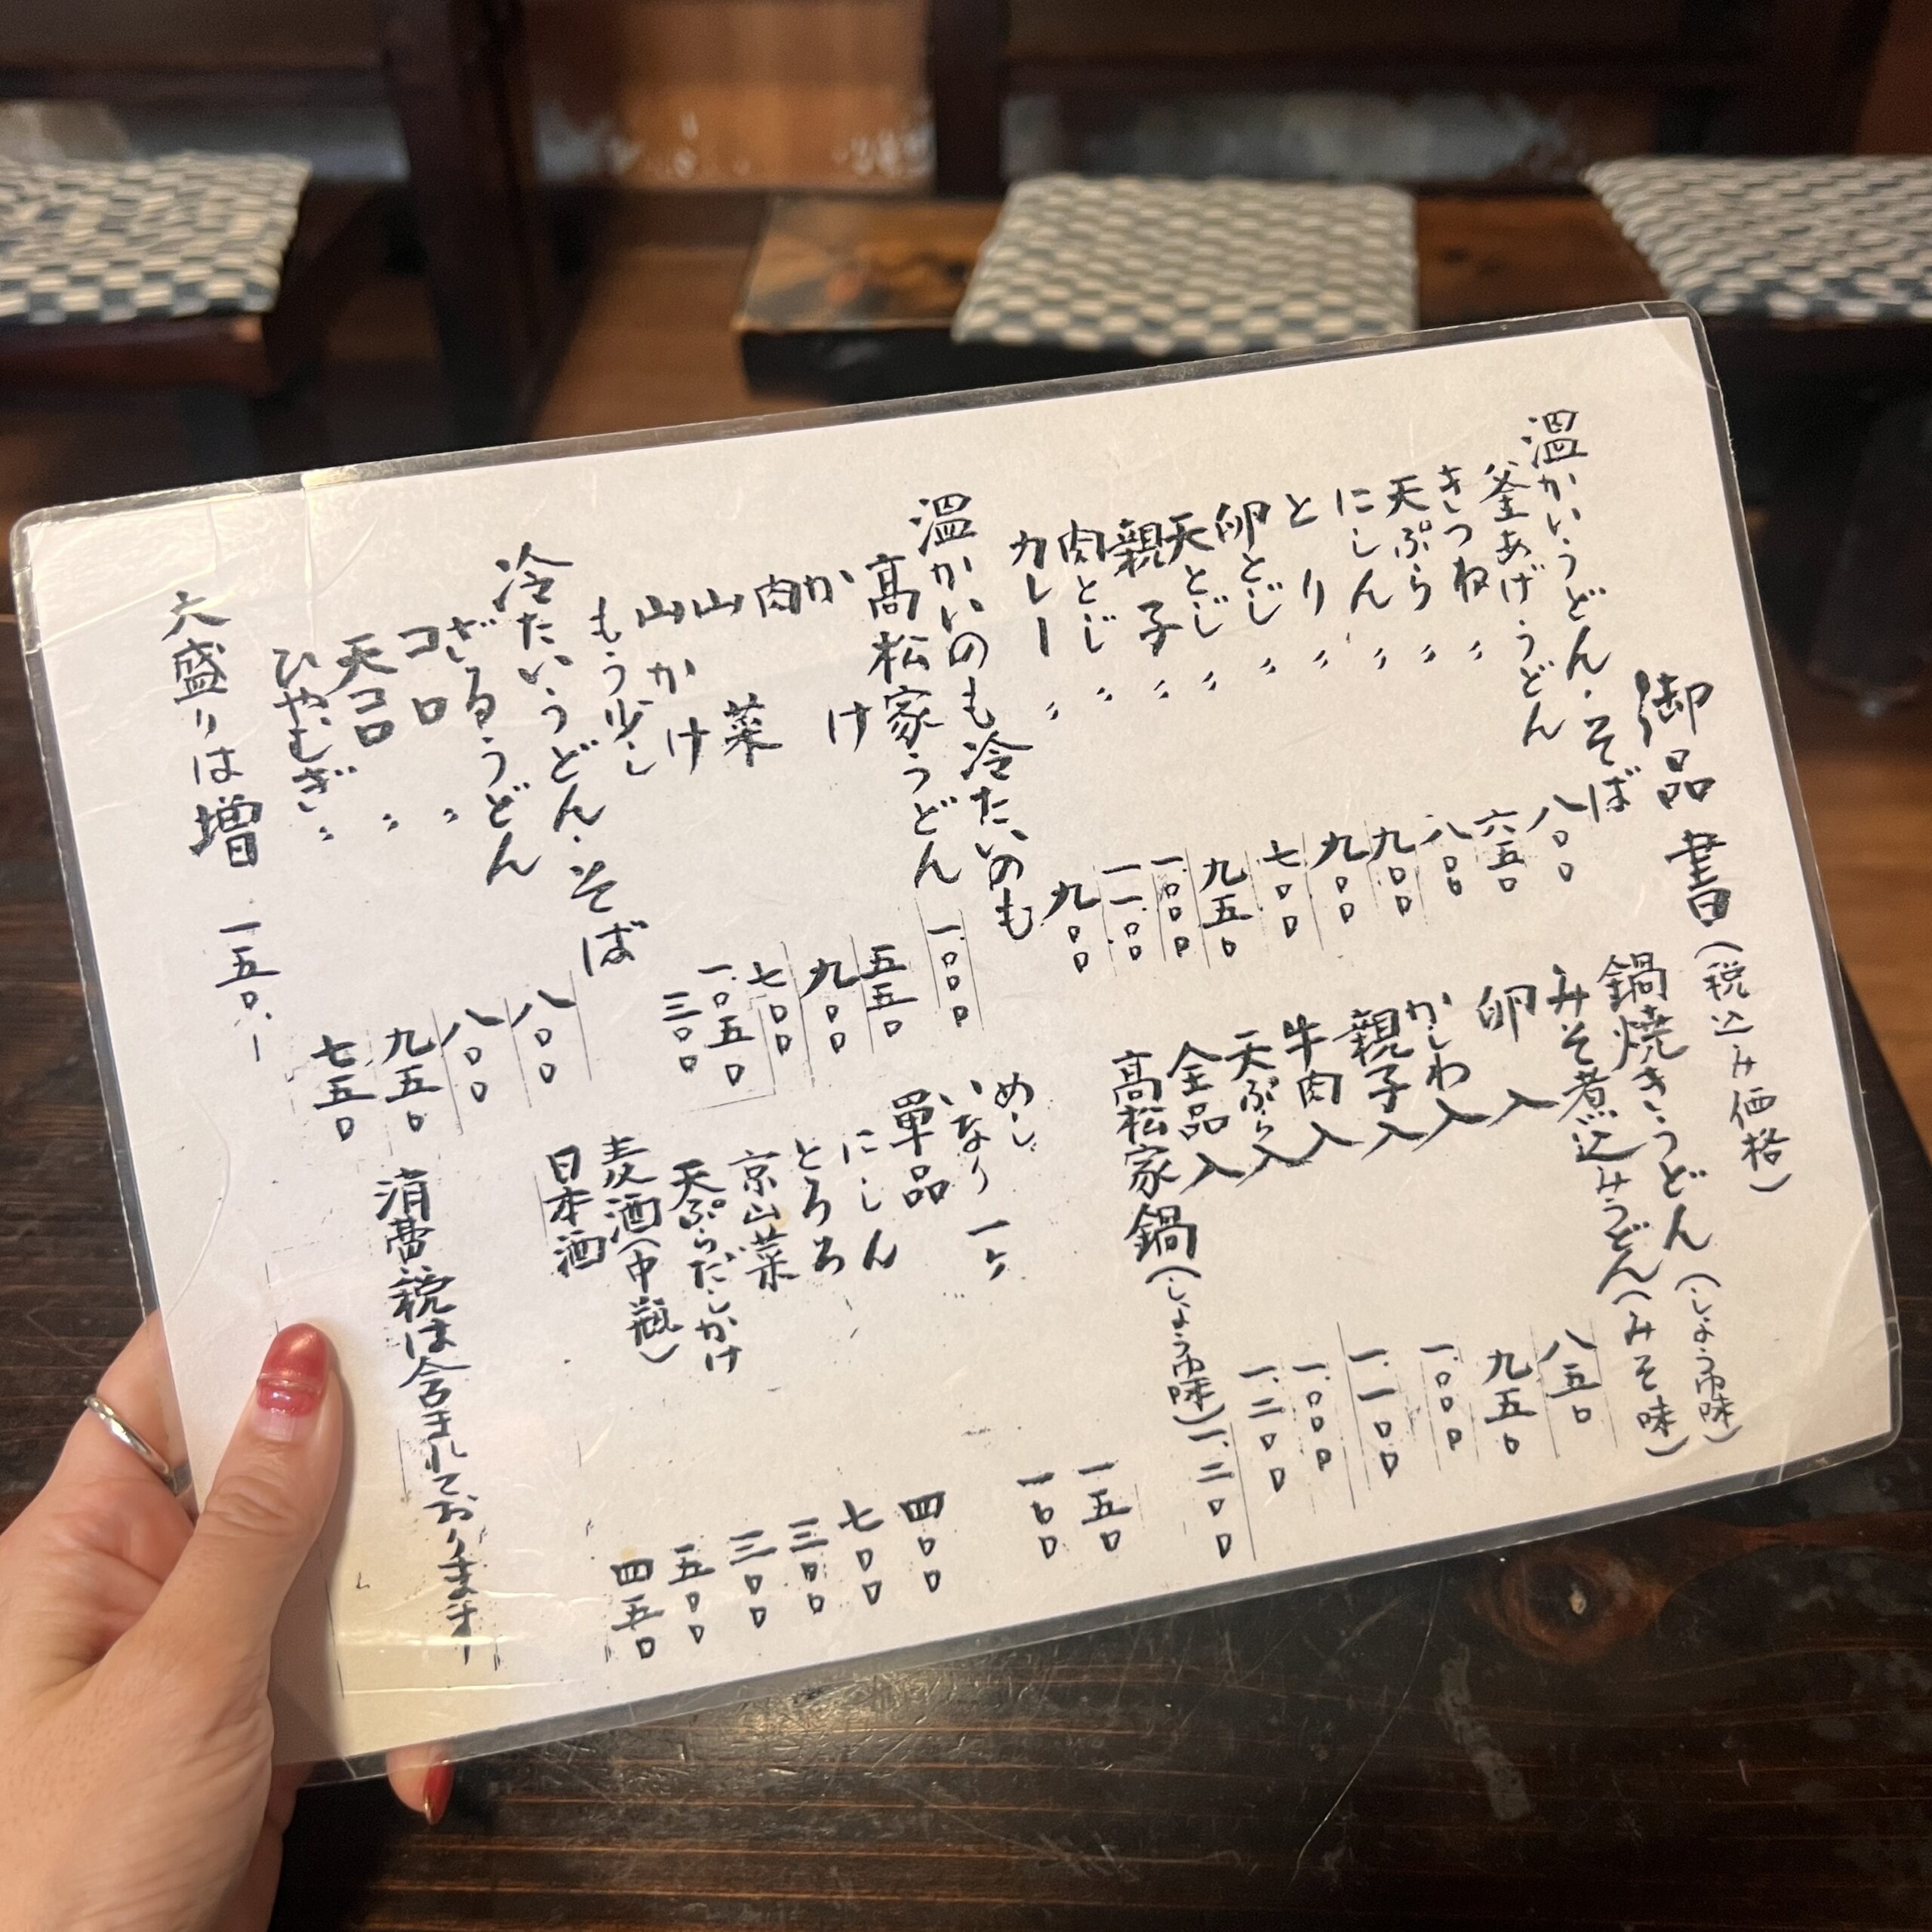 御品書(税込み価格)
温かいうどん・そば
釜あげうどん 八〇〇
きつね 〃 六五〇
天ぷら 〃 八〇〇
にしん 〃 九〇〇
とり 〃 九〇〇
卵とじ 〃 七〇〇
天とじ 〃 九五〇
親子 〃 一、〇〇〇
肉とじ 〃 一、一〇〇
カレー 〃 九〇〇
温かいのも冷たいのも
高松家うどん 一、〇〇〇
かけ 五五〇
肉 九〇〇
山菜 七〇〇
山かけ 一、〇五〇
もう少し 三〇〇
冷たいうどん・そば
ざるうどん 八〇〇
コロ 〃 八〇〇
天コロ 〃 九五〇
ひやむぎ 〃 七五〇
大盛りは増 一五〇、ー
鍋焼きうどん(しょう油味)
みそ煮込みうどん(みそ味)
卵入 八五〇
かしわ入 九五〇
親子入 一、〇〇〇
牛肉入 一、一〇〇
天ぷら入 一、〇〇〇
全品入 一、二〇〇
高松家鍋(しょう油味) 一、二〇〇
めし 一五〇
いなり 一ケ 一〇〇
單品
にしん 四〇〇
とろろ 七〇〇
京山菜 三〇〇
天ぷらだしかけ 三〇〇
麦酒(中瓶) 五〇〇
日本酒 四五〇
消費税は含まれておりますー